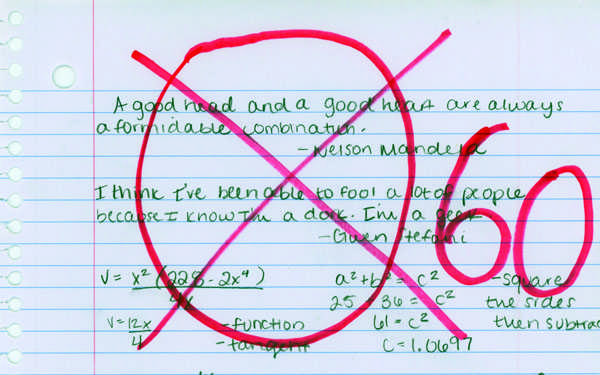 A good head and a good heart are always
a formidable combination.
-Nelson Mandela
60
I think I've been able to fool a lot of people
because I know I'm a dork. I'm a geek
-Gwen Stefani
V = x² (228 - 2x⁴) a² + b² = c² -square
4x 25 + 36 = c² the sides
V = 12x -function 61 = c² then subtrac
4 -tangent c = 1.0697